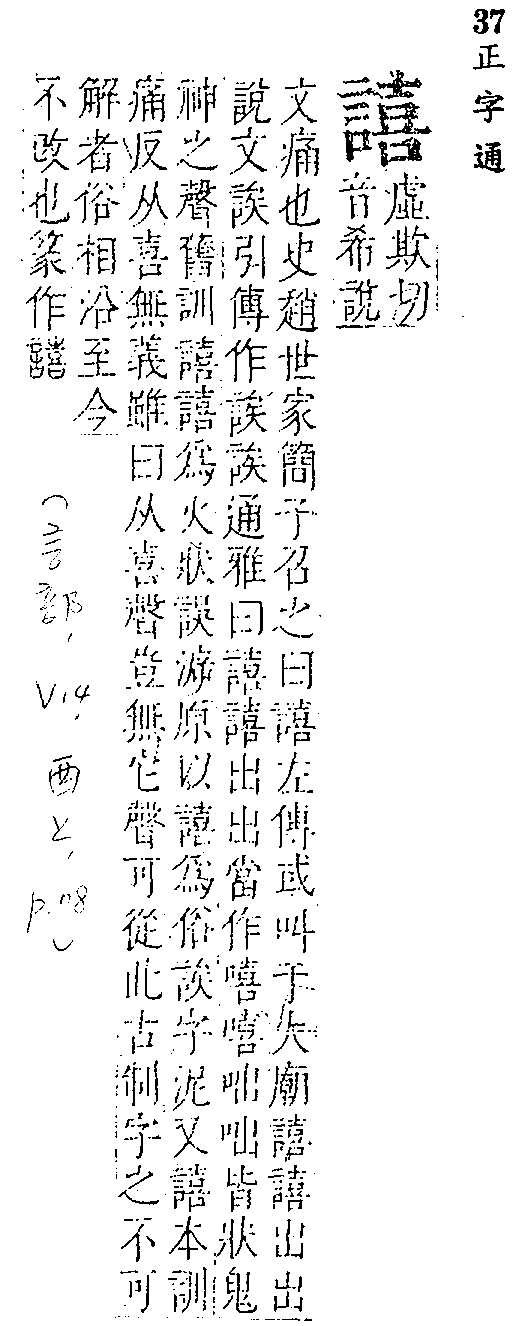 37 正字通
譆
虛欺切
音希說
文痛也史趙世家簡子召之曰譆左傳或叫于大廟譆譆出出
說文誒引傳作誒誒通雅曰譆譆出出當作嘻嘻咄咄皆狀鬼
神之聲舊訓譆譆爲火狀誤泝原以譆爲俗誒字泥又譆本訓
痛反从喜無義雖曰从喜聲豈無它聲可從此古制字之不可
解者俗相沿至今
不改也篆作譆
(言部, V14, 酉上, p.108)